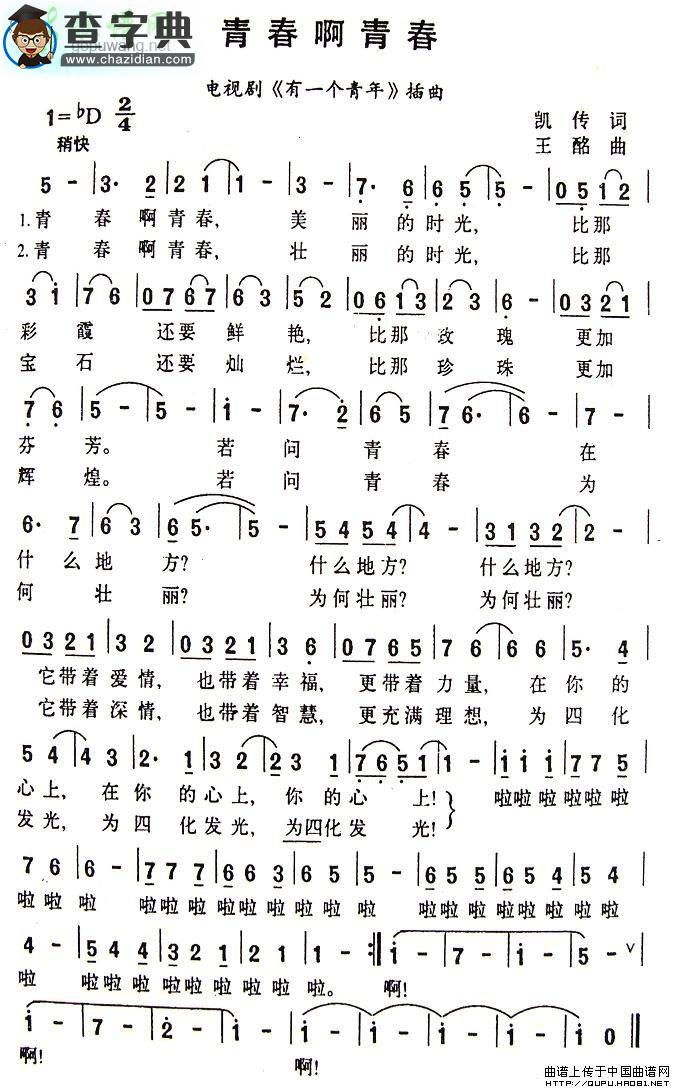 查字典
gepuwang.net
www.chazidian.com
青春啊青春
电视剧《有一个青年》插曲
1=♭D 2/4
凯传词
稍快
王酩曲
5 - | 3· 2 | 2 1 | 1 - | 3 - | 7· 6 | 6 5 | 5 - | 0 5 1 2 |
1.青 春 啊青春, 美 丽 的时光, 比那
2.青 春 啊青春, 壮 丽 的时光, 比那
3 1 | 7 6 | 0 7 6 7 | 6 3 | 5 2 | 0 6 1 3 | 2 3 | 6 - | 0 3 2 1 |
彩 霞 还要 鲜 艳, 比那 玫 瑰 更加
宝 石 还要 灿 烂, 比那 珍 珠 更加
7 6 | 5 - | 5 - | 1 - | 7· 2 | 6 5 | 7 6· | 6 - | 7 - |
芬 芳。 若 问 青 春 在
辉 煌。 若 问 青 春 为
6· 7 | 6 3 | 6 5· | 5 - | 5 4 5 4 | 4 - | 3 1 3 2 | 2 - |
什 么 地 方? 什么地方? 什么地方?
何 壮 丽? 为何壮丽? 为何壮丽?
0 3 2 1 | 3 2 | 0 3 2 1 | 3 6 | 0 7 6 5 | 7 6 | 6 6 | 5· 4 |
它带着 爱情, 也带着 幸福, 更带着 力量, 在 你 的
它带着 深情, 也带着 智慧, 更充满 理想, 为 四 化
5 4 | 4 3 | 2· 1 | 3 2 2 | 2 3 | 1 7 6 5 1 | 1 - | 1 1 1 | 7 7 5 |
心上, 在 你 的心上, 你 的 心 上! 啦啦 啦 啦 啦 啦
发光, 为 四 化发光, 为四化 发 光!
7 6 | 6 - | 7 7 7 | 6 6 3 | 6 5 | 5 - | 6 5 5 | 6 5 4 | 5 4 |
啦 啦 啦 啦啦 啦 啦 啦 啦 啦 啦 啦 啦 啦 啦 啦 啦 啦 啦 啦
4 - | 5 4 4 | 3 2 1 | 2 1 | 1 - :‖ 1 - | 7 - | 1 - | 5 - ∨ |
啦 啦啦 啦 啦 啦 啦 啦 啦。 啊!
1 - | 7 - | 2 - | 1 - | 1 - | 1 - | 1 - | 1 0 ‖
啊! 啊!
曲谱上传于中国曲谱网
HTTP://QUPU.HAO81.NET